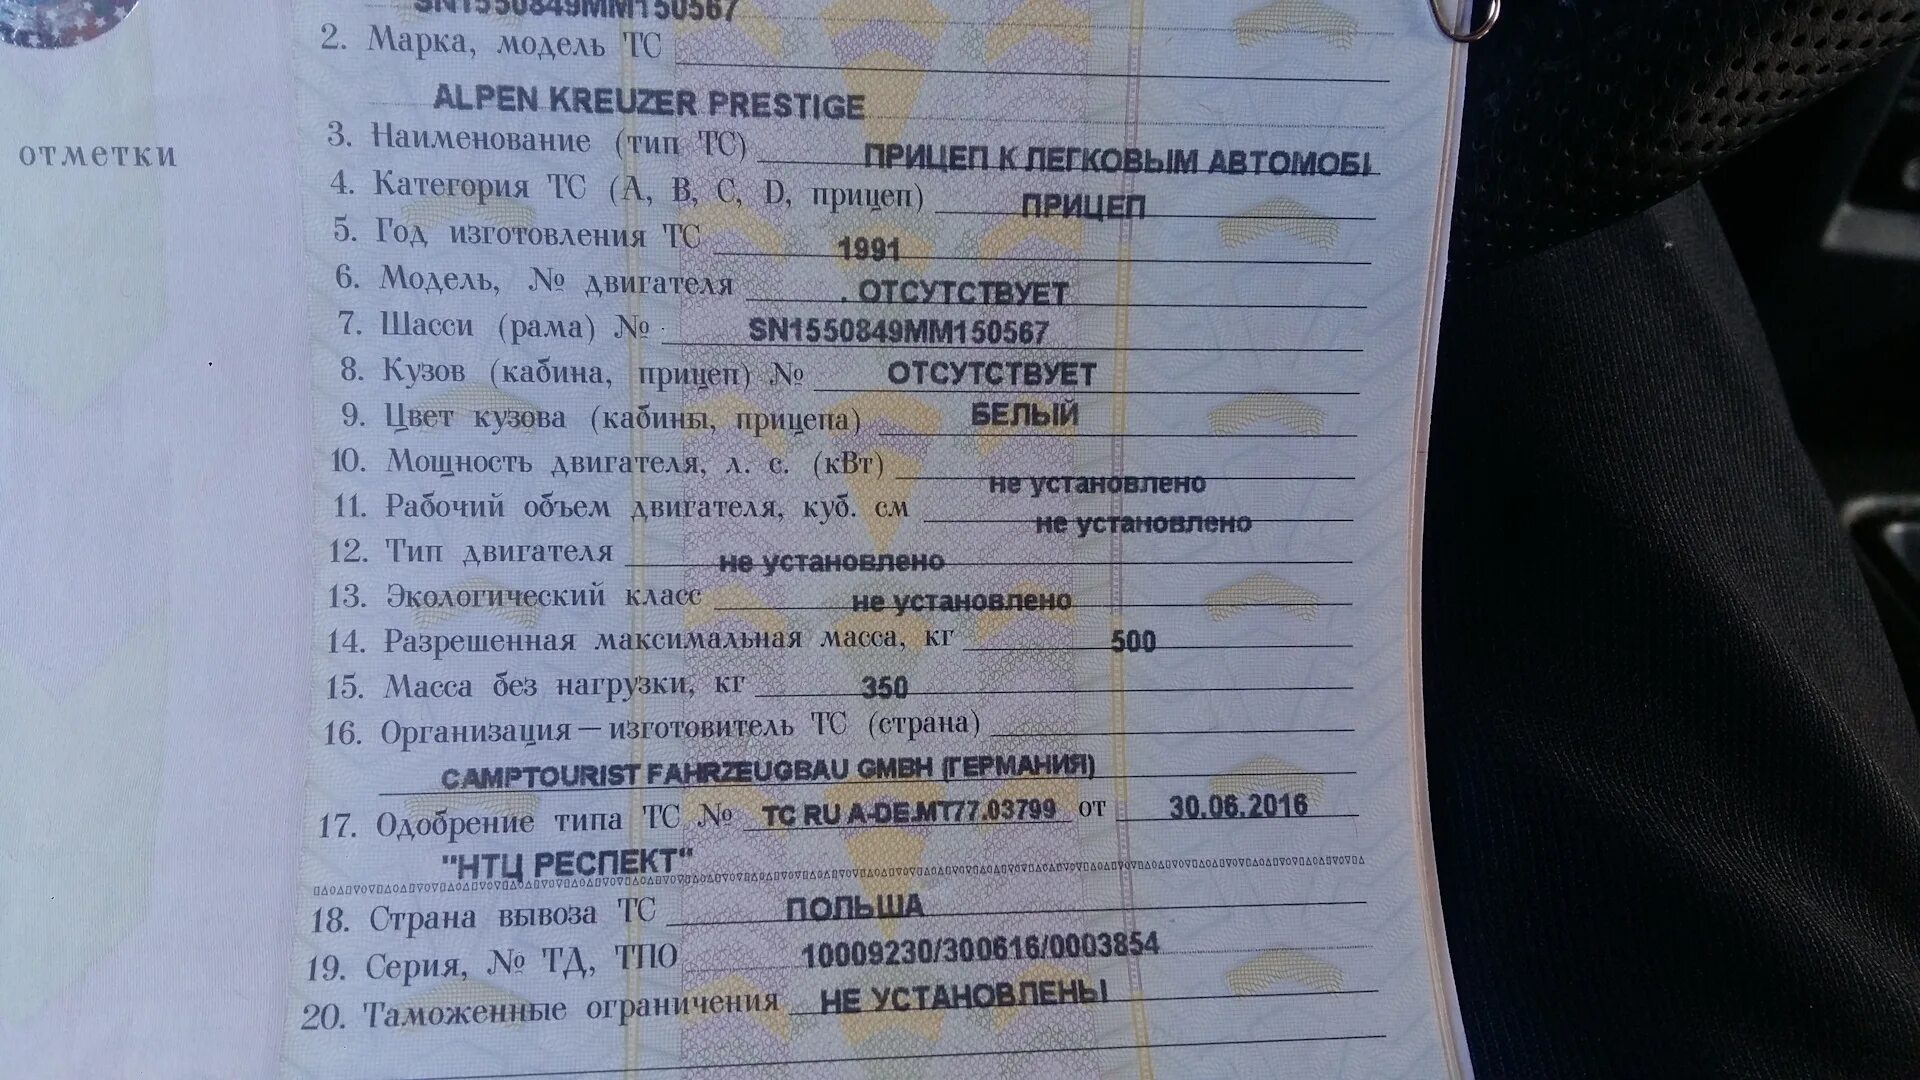 SN1550849MM150567
2. Марка, модель ТС
ALPEN KREUZER PRESTIGE
отметки
3. Наименование (тип ТС) ПРИЦЕП К ЛЕГКОВЫМ АВТОМОБІ
4. Категория ТС (A, B, C, D, прицеп) ПРИЦЕП
5. Год изготовления ТС 1991
6. Модель, № двигателя . ОТСУТСТВУЕТ
7. Шасси (рама) № SN1550849MM150567
8. Кузов (кабина, прицеп) № ОТСУТСТВУЕТ
9. Цвет кузова (кабины, прицепа) БЕЛЫЙ
10. Мощность двигателя, л. с. (кВт) не установлено
11. Рабочий объем двигателя, куб. см не установлено
12. Тип двигателя не установлено
13. Экологический класс не установлено
14. Разрешенная максимальная масса, кг 500
15. Масса без нагрузки, кг 350
16. Организация – изготовитель ТС (страна)
CAMPTOURIST FAHRZEUGBAU GMBH (ГЕРМАНИЯ)
17. Одобрение типа ТС № TC RU A-DE.MT77.03799 от 30.06.2016
"НТЦ РЕСПЕКТ"
18. Страна вывоза ТС ПОЛЬША
19. Серия, № ТД, ТПО 10009230/300616/0003854
20. Таможенные ограничения НЕ УСТАНОВЛЕНЫ